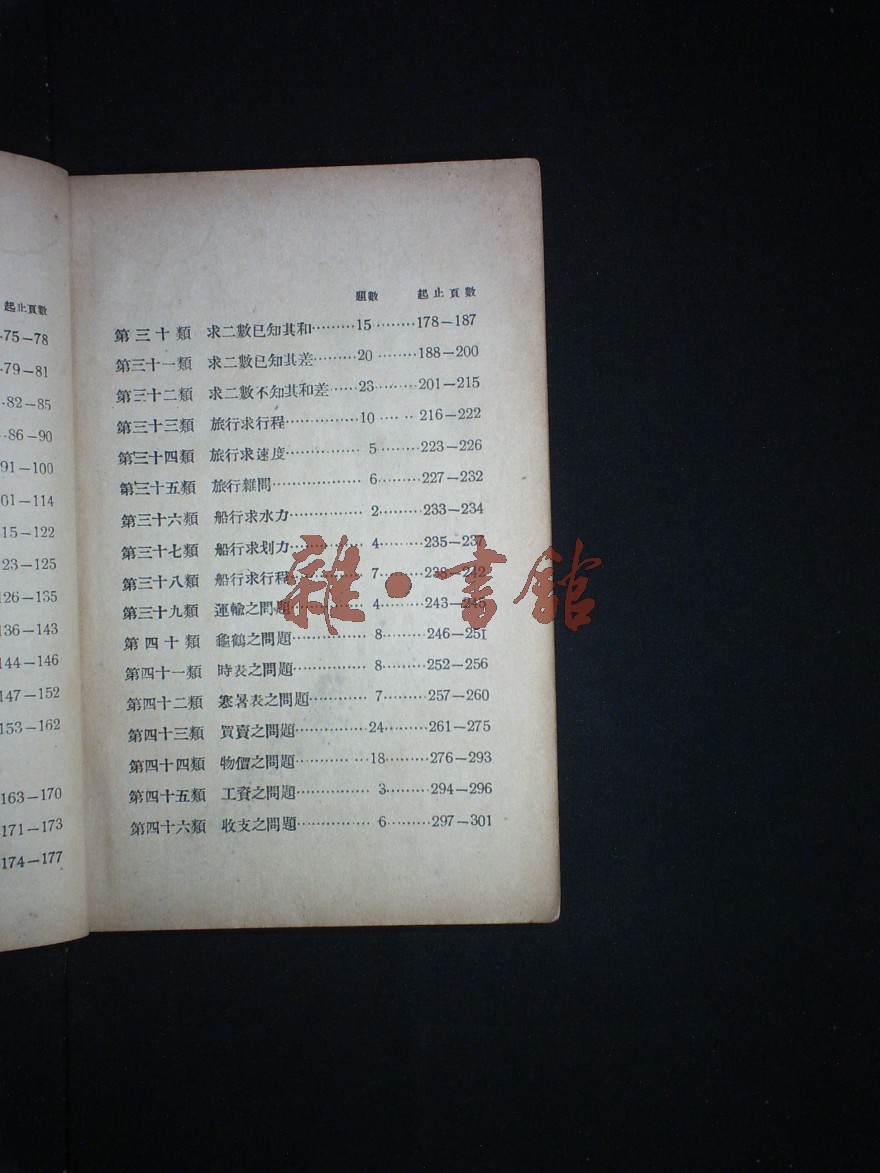 起止頁數
75－78
79－81
82－85
86－90
91－100
01－114
15－122
23－125
126－135
136－143
144－146
147－152
153－162
163－170
171－173
174－177
題數 起止頁數
第三十類 求二數已知其和………15………178－187
第三十一類 求二數已知其差……20………188－200
第三十二類 求二數不知其和差……23………201－215
第三十三類 旅行求行程……………10………216－222
第三十四類 旅行求速度……………5………223－226
第三十五類 旅行雜問………………6………227－232
第三十六類 船行求水力……………2………233－234
第三十七類 船行求划力……………4………235－237
第三十八類 船行求行程……………7………238－242
第三十九類 運輸之問題……………4………243－245
第四十類 龜鶴之問題………………8………246－251
第四十一類 時表之問題……………8………252－256
第四十二類 寒暑表之問題…………7………257－260
第四十三類 買賣之問題……………24………261－275
第四十四類 物價之問題……………18………276－293
第四十五類 工資之問題……………3………294－296
第四十六類 收支之問題……………6………297－301
雜·書館